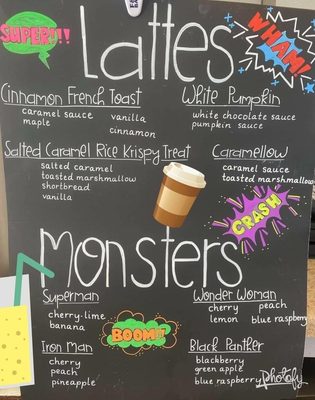 SUPER!!!
Lattes
WHAM!
Cinnamon French Toast
caramel sauce
maple
vanilla
cinnamon
White Pumpkin
white chocolate sauce
pumpkin sauce
Salted Caramel Rice Krispy Treat
salted caramel
toasted marshmallow
shortbread
vanilla
Caramellow
caramel sauce
toasted marshmallow
CRASH
Monsters
Superman
cherry-lime
banana
Wonder Woman
cherry peach
lemon blue raspberry
BOOM!!
Iron Man
cherry
peach
pineapple
Black Panther
blackberry
green apple
blue raspberry
photofy